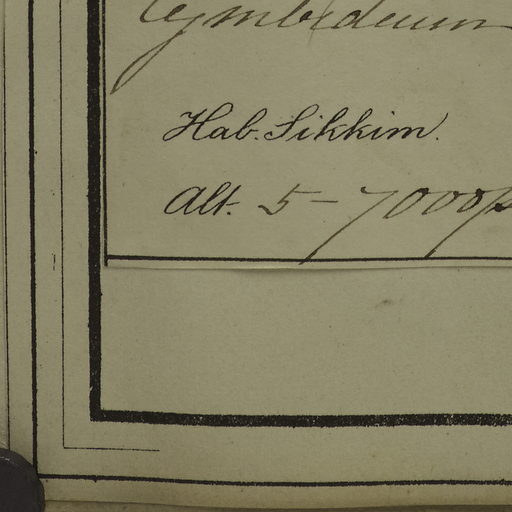 Cymbidium
Hab. Sikkim.
Alt. 5-7000